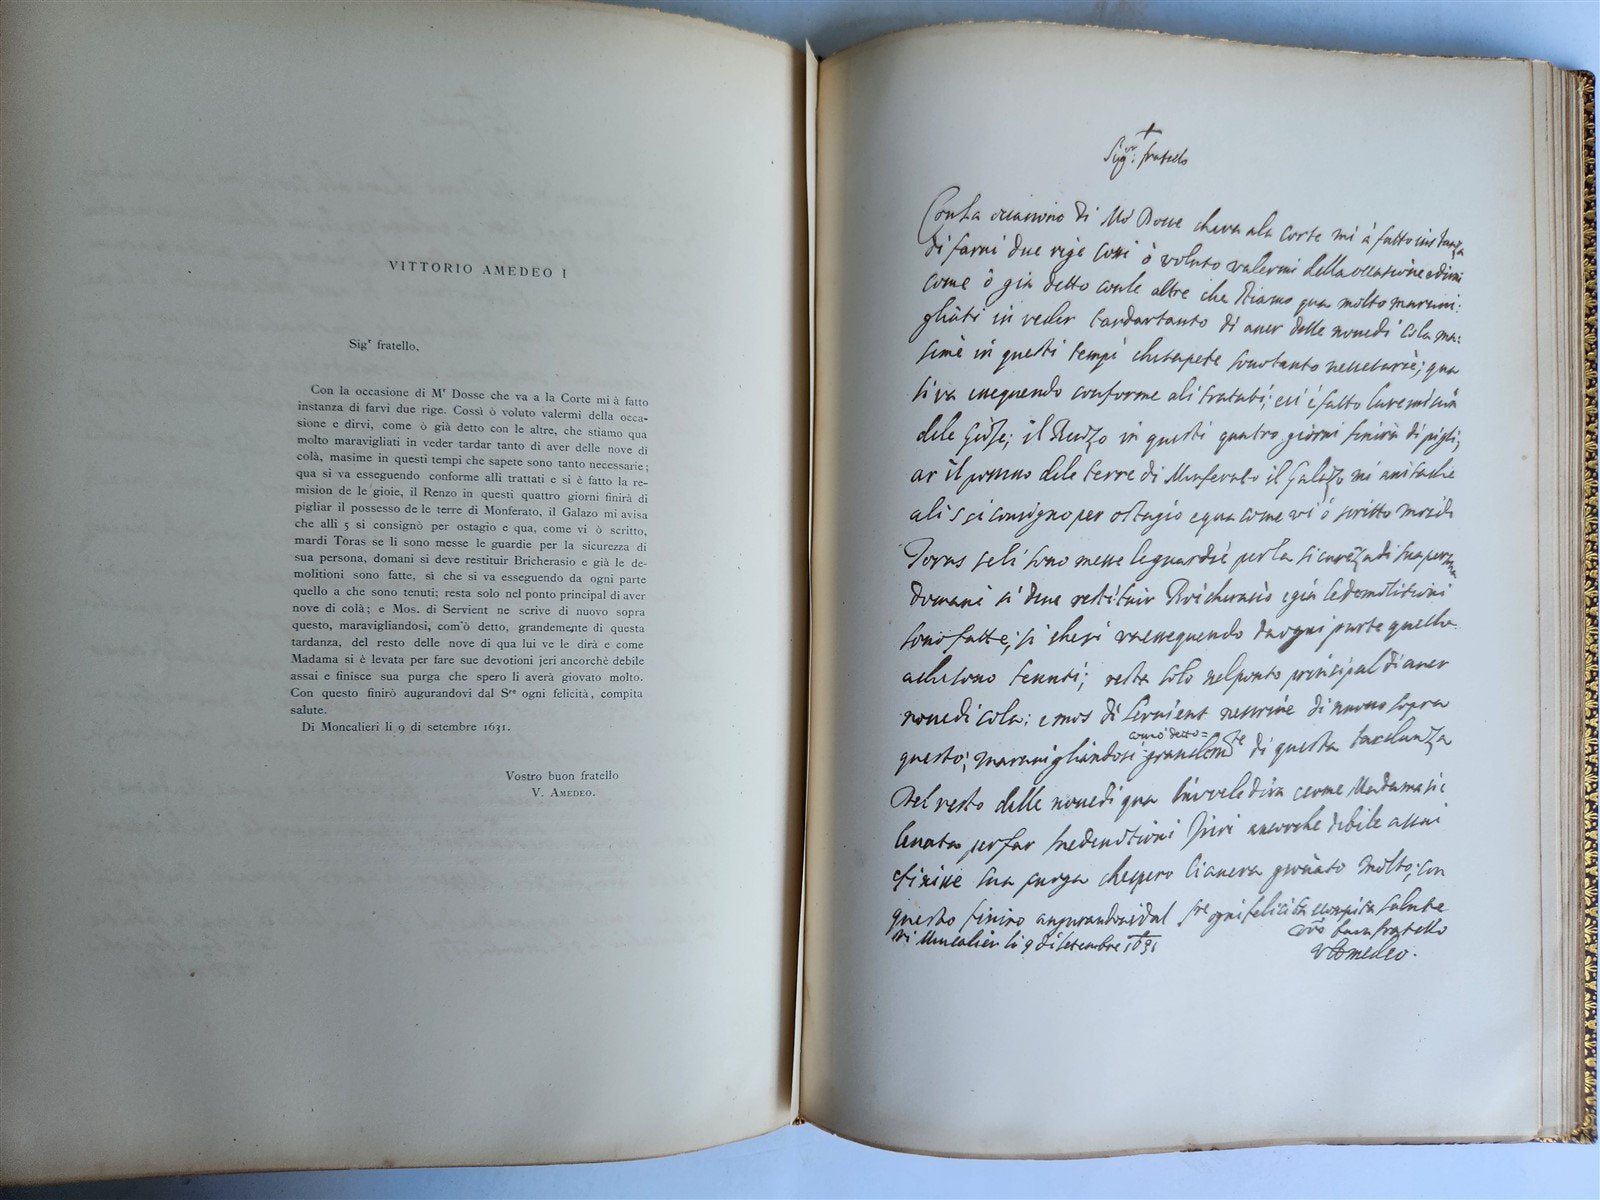 VITTORIO AMEDEO I
Sigr fratello,
Con la occasione di Mr Dosse che va a la Corte mi à fatto
instanza di farvi due rige. Cossì ò voluto valermi della occa-
sione e dirvi, come ò già detto con le altre, che stiamo qua
molto maravigliati in veder tardar tanto di aver delle nove di
colà, masime in questi tempi che sapete sono tanto necessarie;
qua si va esseguendo conforme alli trattati e si è fatto la re-
mision de le gioie, il Renzo in questi quattro giorni finirà di
pigliar il possesso de le terre di Monferato, il Galazo mi avisa
che alli 5 si consignò per ostagio e qua, come vi ò scritto,
mardi Toras se li sono messe le guardie per la sicurezza di
sua persona, domani si deve restituir Bricherasio e già le de-
molitioni sono fatte, sì che si va esseguendo da ogni parte
quello a che sono tenuti; resta solo nel ponto principal di aver
nove di colà; e Mos. di Servient ne scrive di nuovo sopra
questo, maravigliandosi, com'ò detto, grandemente di questa
tardanza, del resto delle nove di qua lui ve le dirà e come
Madama si è levata per fare sue devotioni jeri ancorchè debile
assai e finisce sua purga che spero li averà giovato molto.
Con questo finirò augurandovi dal Sre ogni felicità, compita
salute.
Di Moncalieri li 9 di setembre 1631.
Vostro buon fratello
V. AMEDEO.
Sigor: fratello
Con la occasione di Mr Dosse che va a la Corte mi à fatto instanza
di farvi due rige cossi ò voluto valermi della occasione e dirvi
come ò gia detto con le altre che stiamo qua molto maravi:
gliati in veder tardar tanto di aver delle nove di cola ma:
sime in questi tempi che sapete sono tanto nessesarie; qua
si va eseguendo conforme ali tratati; e si è fatto la remision
dele Gioie; il Renzo in questi quatro giorni finirà di pigli,
ar il possesso dele terre di Monferato il Galazo mi avisa che
ali 5 si consigno per ostagio e qua come vi ò scritto mardi
Toras se li sono messe le guardie per la sicurezza di sua persona
domani si deve restituir Bricherasio e gia le demolitioni
sono fatte; si che si va essequendo da ogni parte quello
a che sono tenuti; resta solo nel ponto principal di aver
nove di cola; e mos di Servient ne scrive di nuovo sopra
questo; maravigliandosi com'ò detto grandemte di questa tardanza
Del resto delle nove di qua lui ve le dira e come Madama si è
levata per far sue devotioni Jeri ancorche debile assai
e finisse sua purga che spero li avera giovato molto; con
questo finiro augurandovi dal Sre ogni felicita compita salute
Di Moncalier li 9 di setembre 1631
Vro buon fratello
V Amedeo.